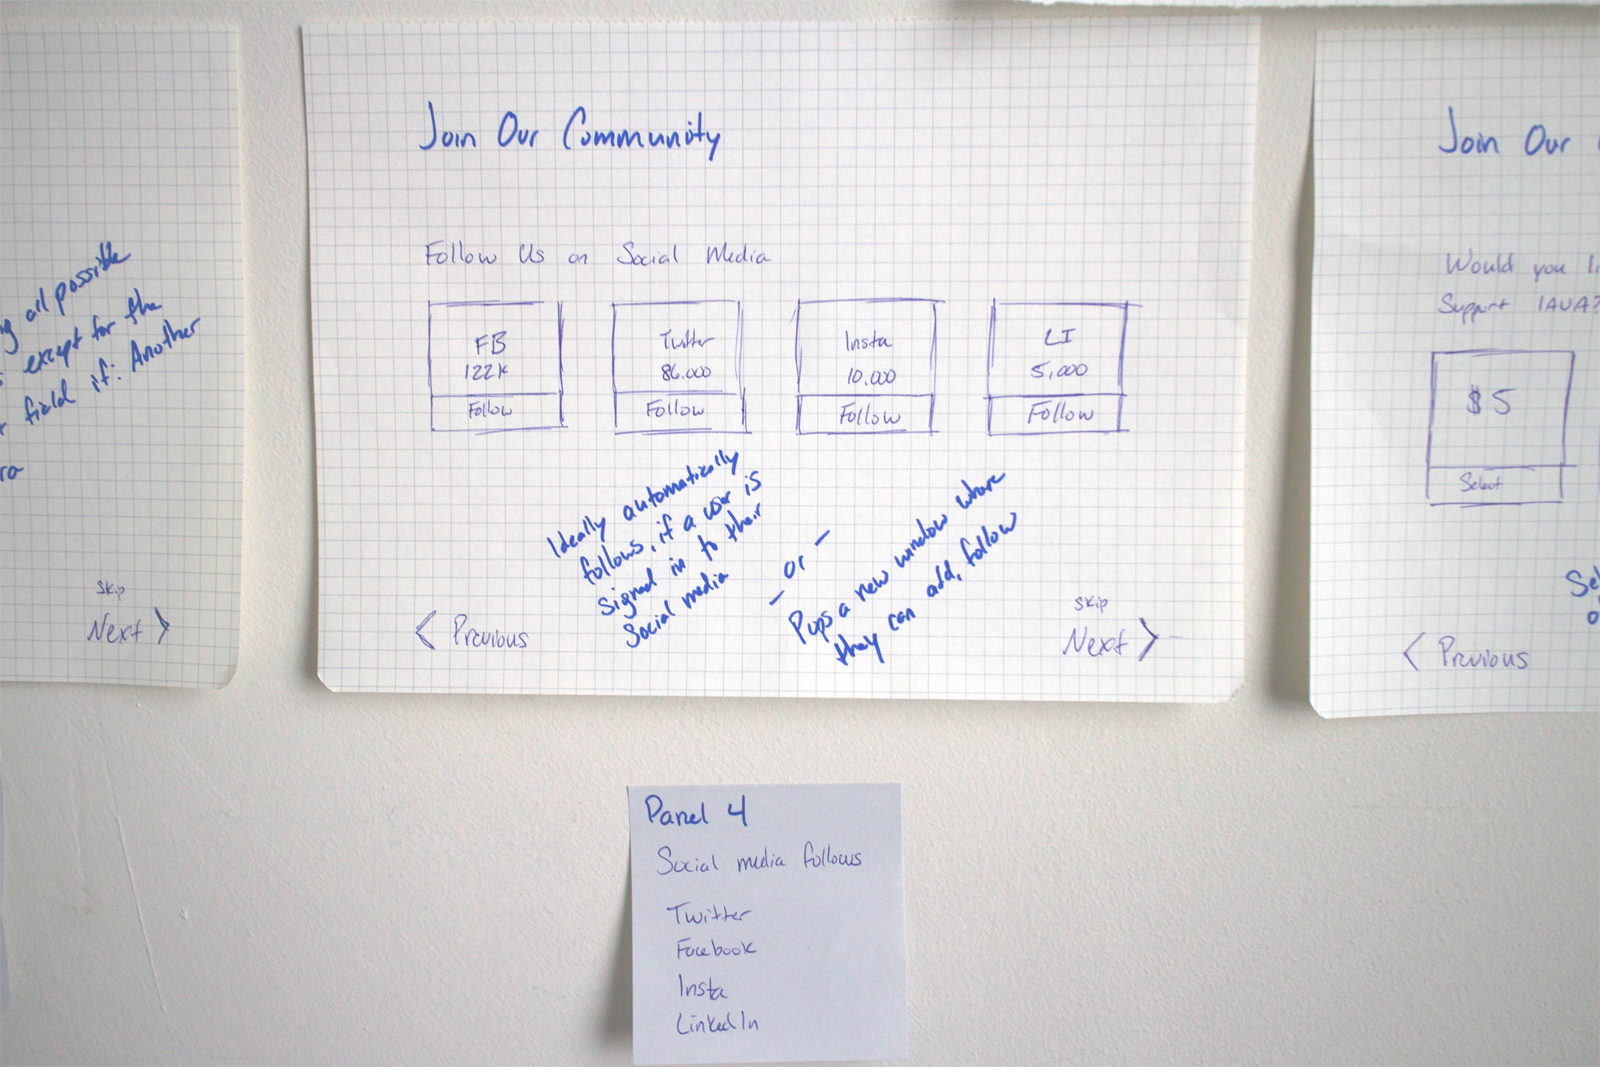 all possible
except for the
field if: Another
Skip
Next >
Join Our Community
Follow Us on Social Media
FB
122K
Follow
Twitter
86.000
Follow
Insta
10.000
Follow
LI
5,000
Follow
Ideally automatically
follows, if a user is
signed in to their
Social media
- or -
Pops a new window where
they can add, follow
< Previous
Skip
Next >
Join Our
Would you li
Support IAVA?
$5
Select
Sel
< Previous
Panel 4
Social media follows
Twitter
Facebook
Insta
LinkedIn